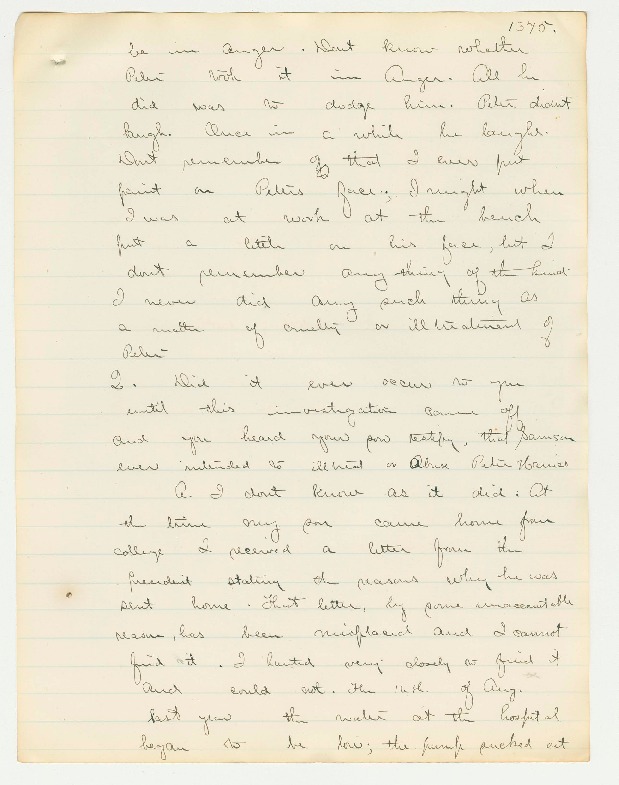 1375.
be in anger. Dont know whether
Peter took it in Anger. All he
did was to dodge him. Peter didnt
laugh. Once in a while he laughs.
Dont remember that I ever put
paint on Peters face; I might when
I was at work at the bench
put a little on his face, but I
dont remember any thing of the kind.
I never did any such thing as
a matter of cruelty or illtreatment of
Peter
Q. Did it ever occur to you
until this investigation came off
and you heard your son testify, that Samson
ever intended to illtreat or Abuse Peter
A. I dont know as it did. At
the time my son came home from
college I received a letter from the
President stating the reasons why he was
sent home. That letter, by some unaccountable
reason, has been misplaced and I cannot
find it. I hunted very closely to find it
and could not. The of Aug.
last year the water at the hospital
began to be low; the pump sucked out